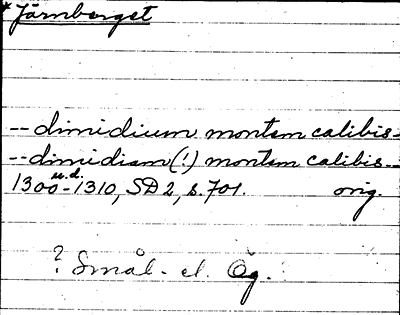 * Järnberget
-- dimidium montem calibis -
-- dimidiam (!) montem calibis --
1300 u.d. - 1310, SD 2, s. 701. orig.
? Smål. el. Ög.